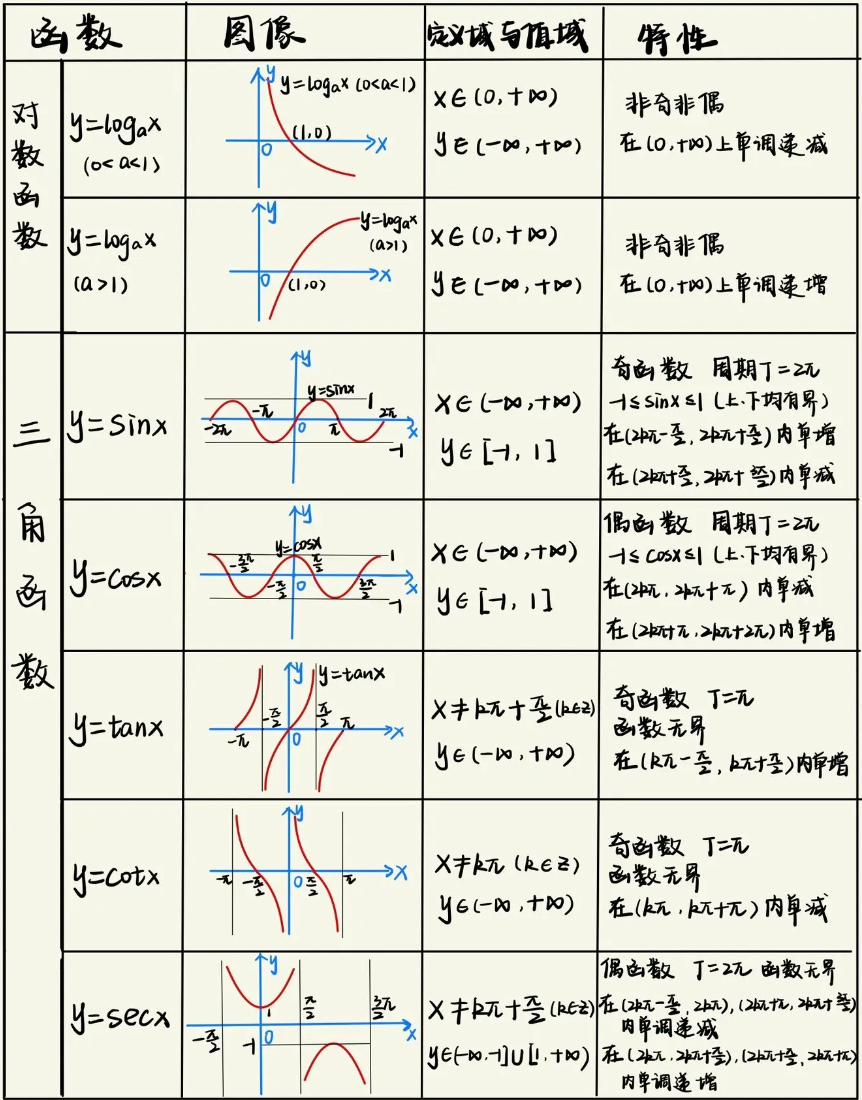 函数 图像 定义域与值域 特性
对数函数
y=logₐx
(0<a<1)
y
y=logₐx (0<a<1)
(1,0)
0
x
x∈(0,+∞)
y∈(-∞,+∞)
非奇非偶
在(0,+∞)上单调递减
y=logₐx
(a>1)
y
y=logₐx
(a>1)
0
(1,0)
x
x∈(0,+∞)
y∈(-∞,+∞)
非奇非偶
在(0,+∞)上单调递增
三角函数
y=sinx
y
y=sinx
1
-2π
-π
0
π
2π
x
-1
x∈(-∞,+∞)
y∈[-1,1]
奇函数 周期T=2π
-1≤sinx≤1(上.下均有界)
在(2kπ-π/2,2kπ+π/2)内单增
在(2kπ+π/2,2kπ+3π/2)内单减
y=cosx
y
y=cosx
1
-3π/2
-π/2
0
π/2
3π/2
x
-1
x∈(-∞,+∞)
y∈[-1,1]
偶函数 周期T=2π
-1≤cosx≤1(上.下均有界)
在(2kπ,2kπ+π)内单减
在(2kπ+π,2kπ+2π)内单增
y=tanx
y
y=tanx
-π
-π/2
0
π/2
π
x
x≠kπ+π/2(k∈z)
y∈(-∞,+∞)
奇函数 T=π
函数无界
在(kπ-π/2,kπ+π/2)内单增
y=cotx
y
-π
-π/2
0
π/2
π
x
x≠kπ(k∈z)
y∈(-∞,+∞)
奇函数 T=π
函数无界
在(kπ,kπ+π)内单减
y=secx
y
1
π/2
3π/2
-π/2
0
x
-1
x≠kπ+π/2(k∈z)
y∈(-∞,-1]∪[1,+∞)
偶函数 T=2π 函数无界
在(2kπ-π/2,2kπ),(2kπ+π,2kπ+3π/2)
内单调递减
在(2kπ,2kπ+π/2),(2kπ+π/2,2kπ+π)
内单调递增